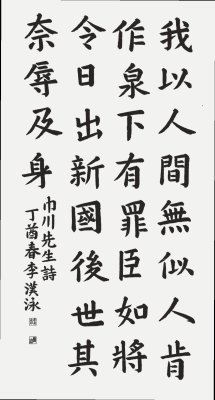 我以人間無似人肯
作泉下有罪臣如將
今日出新國後世其
奈辱及身
巾川先生詩
丁酉春李漢泳